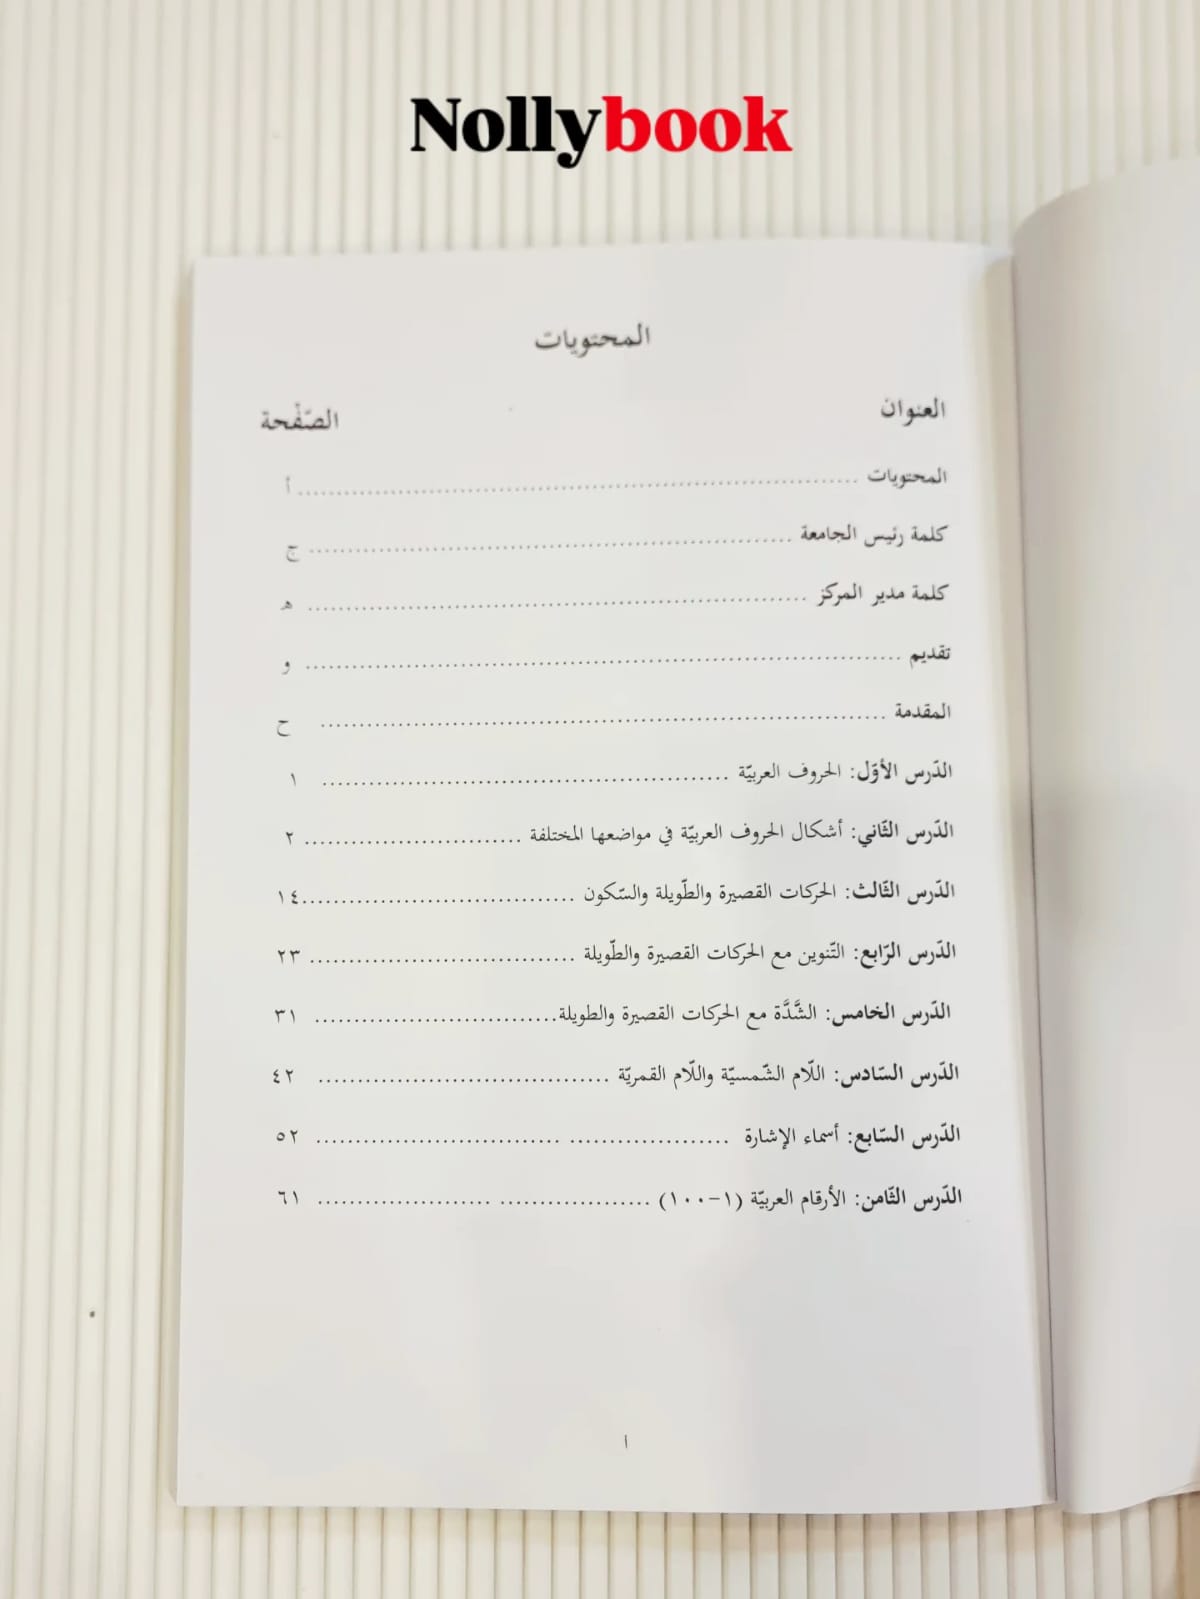 Nollybook
المحتويات
العنوان الصّفْحة
المحتويات ........................................ أ
كلمة رئيس الجامعة ........................................ ج
كلمة مدير المركز ........................................ هـ
تقديم ........................................ و
المقدمة ........................................ ح
الدّرس الأوّل: الحروف العربيّة ........................................ ١
الدّرس الثّاني: أشكال الحروف العربيّة في مواضعها المختلفة ............................ ٢
الدّرس الثّالث: الحركات القصيرة والطّويلة والسّكون ...................................١٤
الدّرس الرّابع: التّنوين مع الحركات القصيرة والطّويلة .................................. ٢٣
الدّرس الخامس: الشَّدَّة مع الحركات القصيرة والطويلة............................... ٣١
الدّرس السّادس: اللّام الشّمسيّة واللّام القمريّة ..................................... ٤٢
الدّرس السّابع: أسماء الإشارة ..................... ............................... ٥٢
الدّرس الثّامن: الأرقام العربيّة (١-١٠٠) .................... ...................... ٦١
ا